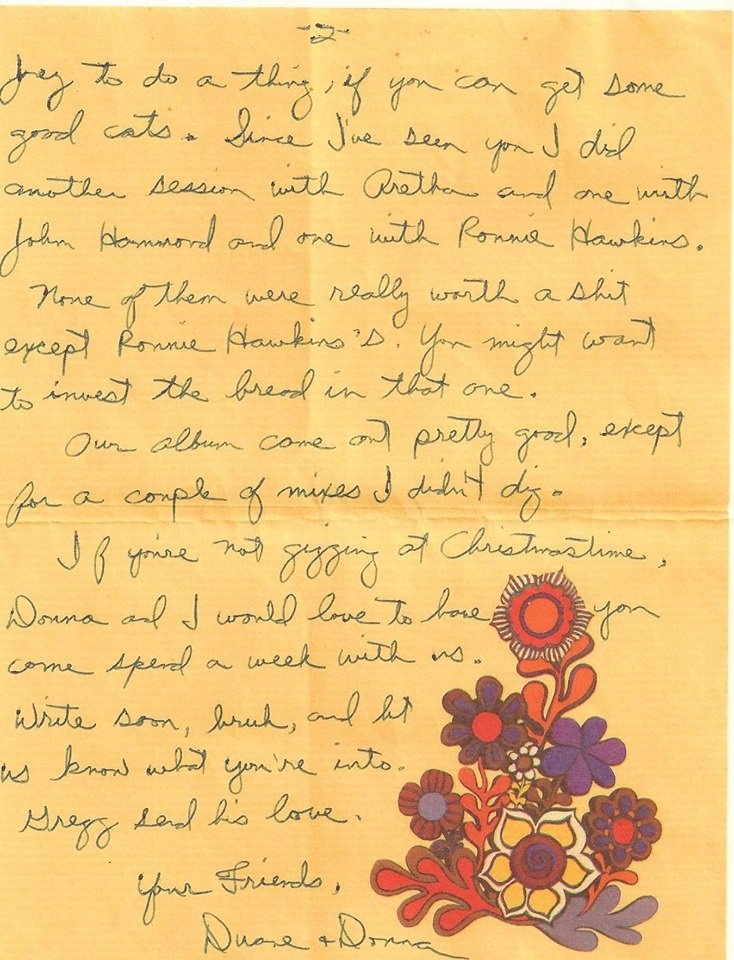 -2-
Joey to do a thing, if you can get some
good cats. Since I've seen you I did
another session with Aretha and one with
John Hammond and one with Ronnie Hawkins.
None of them were really worth a shit
except Ronnie Hawkins's. You might want
to invest the bread in that one.
Our album came out pretty good, except
for a couple of mixes I didn't dig.
If you're not gigging at Christmastime,
Donna and I would love to have you
come spend a week with us.
Write soon, bruh, and let
us know what you're into.
Gregg send his love.
Your Friends,
Duane & Donna